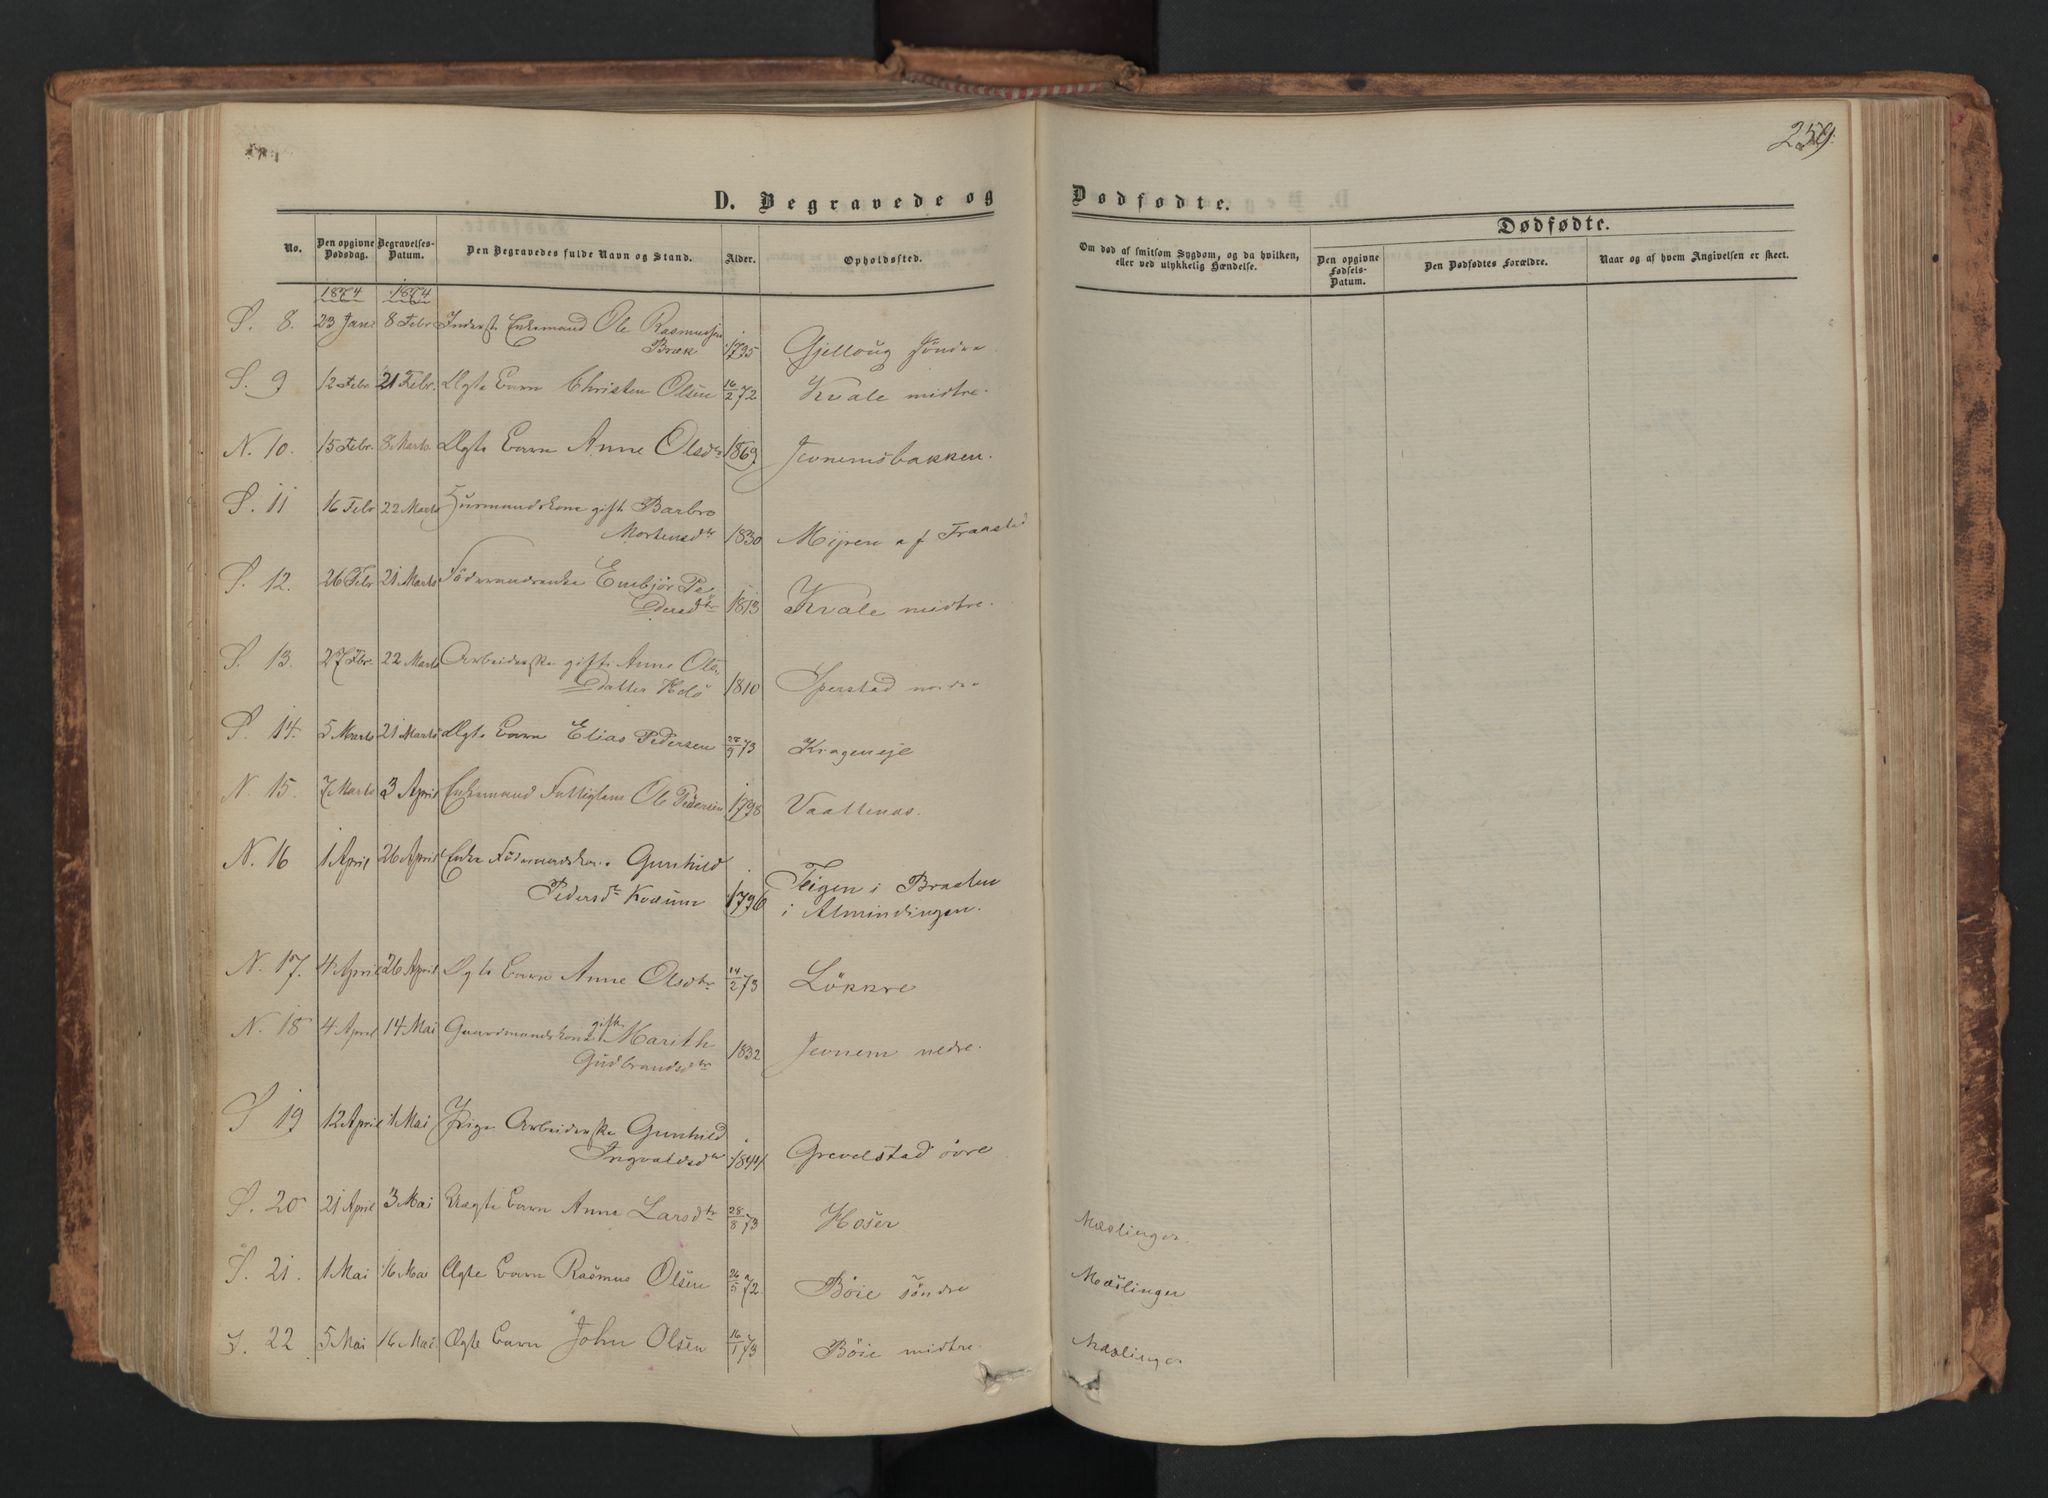 259.
D. Begravede og Dødfødte.
No.
Den opgivne Dødsdag.
Begravelses-Datum.
Den Begravedes fulde Navn og Stand.
Alder.
Opholdssted.
Om død af smitsom Sygdom, og da hvilken, eller ved ulykkelig Hændelse.
Dødfødte.
Den opgivne Fødsels-Datum.
Den Dødfødtes Forældre.
Naar og af hvem Angivelsen er skeet.
1874 1874
S. 8. 23 Jan 8 Febr Inderst Enkemand Ole Rasmussen
Bræk 1795 Gjelloug søndre
S. 9 12 Febr 21 Febr. Ægte Barn Christen Olsen 16/2 72 Kvale midtre.
N. 10. 15 Febr. 8 Marts Ægte Barn Anne Olsdtr 1869 Jevnemsbakken.
S. 11 16 Febr 22 Marts Huusmandskone gift Barbro
Mortensdtr 1830 Myren af Fraastad
S. 12. 26 Febr 21 Marts Födsmandsenke Embjør Pe-
dersdtr 1813 Kvale midtre.
S. 13. 27 Fbr. 22 Marts Arbeiderske gift Anne Ols-
datter Holö 1810 Sperstad nordre
S. 14. 5 Marts 21 Marts Ægte Barn Elias Pedersen 28/9 73 Krageneje
N. 15. 7 Marts 3 April Enkemand Fattiglem Ole Pedersen 1798 Vaallenas.
N. 16 1 April 26 April Enke Födsmandskone Gunhild
Pedersdtr Kvaum 1796 Teigen i Braaten
i Almindingen.
N. 17. 4 April 26 April Ægte Barn Anne Olsdtr 14/2 73 Lökkre
N. 18 4 April 14 Mai Gaardmandskone gift Marith
Gudbrandsdtr 1832 Jevnem nedre.
S 19 12 April 1 Mai Pige Arbeiderske Gunhild
Ingvaldsdtr 1844 Grevelstad övre
S. 20 21 April 3 Mai Uægte Barn Anne Larsdtr 28/8 73 Hoser Mæslinger.
S. 21. 1 Mai 16 Mai Ægte Barn Rasmus Olsen 26/5 72. Böie söndre Mæslinger
S. 22 5 Mai 16 Mai. Ægte Barn John Olsen 16/1 73 Böie midtre. Mæslinger